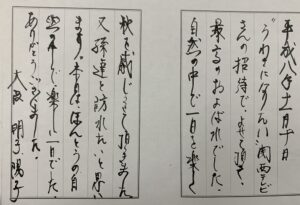 平成八年十一月十日
"うわさになりたい"関西テレビ
さんの招待で、よせて頂き、
最高のおよばれでした。
自然の中で一日を楽しく
秋を感じさせて頂きました。
又孫達と訪れたいと思い
ます。本日はほんとうの自
然の中で楽しい一日でした。
ありがとうございました。
大阪 明子 陽子